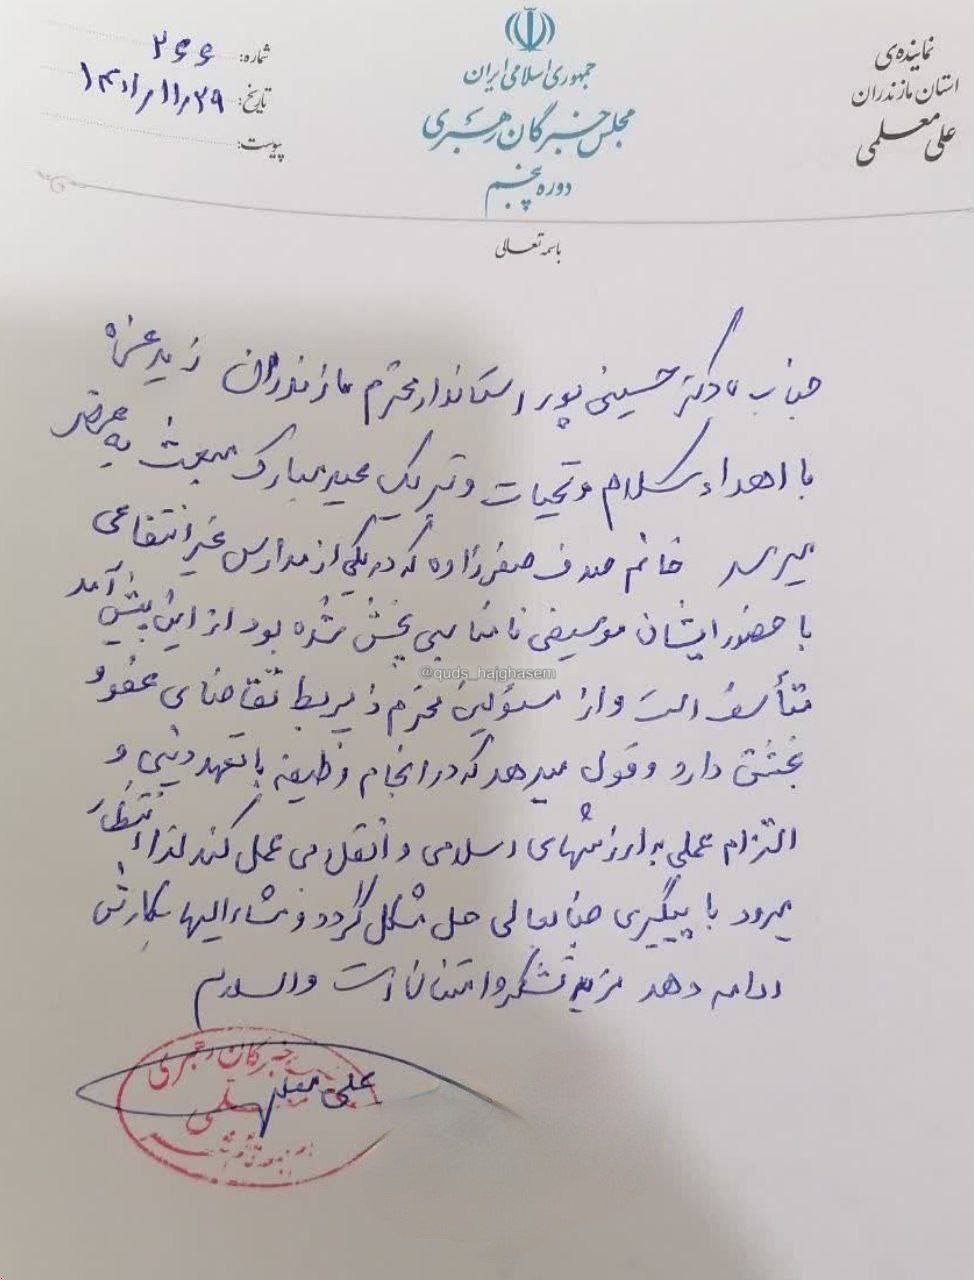 جمهوری اسلامی ایران
مجلس خبرگان رهبری
دوره پنجم
نماینده‌ی
استان مازندران
علی معلمی
شماره: ۲۶۶
تاریخ: ۱۴۰۱/۱۱/۲۹
پیوست:
باسمه تعالی
جناب دکتر حسینی پور استاندار محترم مازندران زید عزه
با اهداء سلام و تحیات و تبریک عید مبارک مبعث به عرض
میرسد خانم صدف صفرزاده که در یکی از مدارس غیر انتفاعی
با حضور ایشان موسیقی نامناسبی پخش شده بود از این پیش آمد
متأسف است و از مسؤلین محترم ذیربط تقاضای عفو و
بخشش دارد و قول میدهد که در انجام وظیفه با تعهد دینی و
التزام عملی به ارزشهای اسلامی و انقلابی عمل کند لذا انتظار
میرود با پیگیری جنابعالی حل مشکل گردد و مشارالیها بکارش
ادامه دهد مزید تشکر و امتنان است والسلام
علی معلمی
خبرگان رهبری
@quds_hajghasem